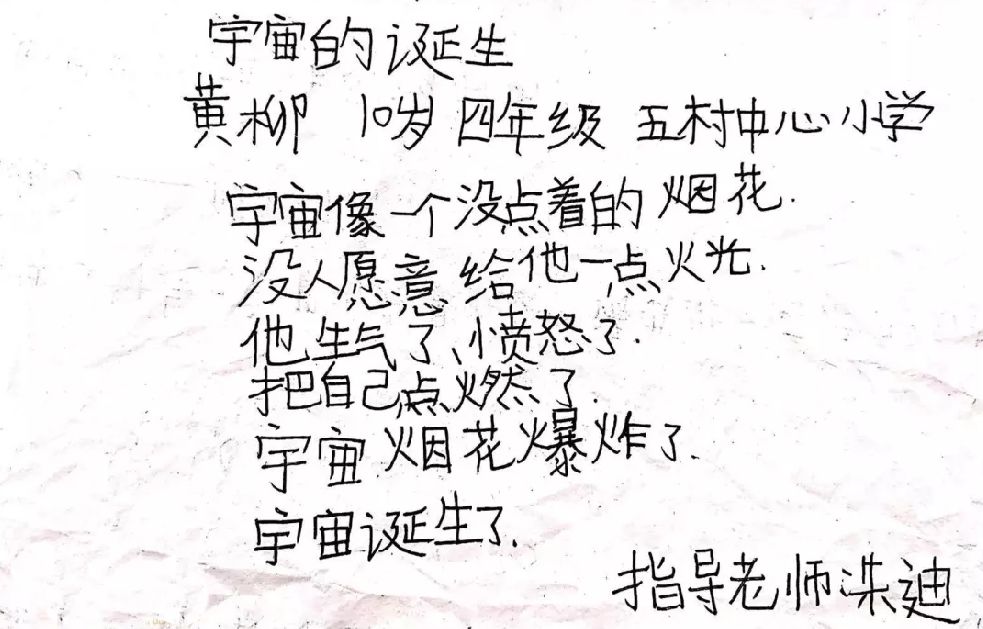 宇宙的诞生
黄柳 10岁 四年级 五村中心小学
宇宙像一个没点着的烟花.
没人愿意给他一点火光.
他生气了、愤怒了.
把自己点燃了.
宇宙烟花爆炸了.
宇宙诞生了.
指导老师洙迪